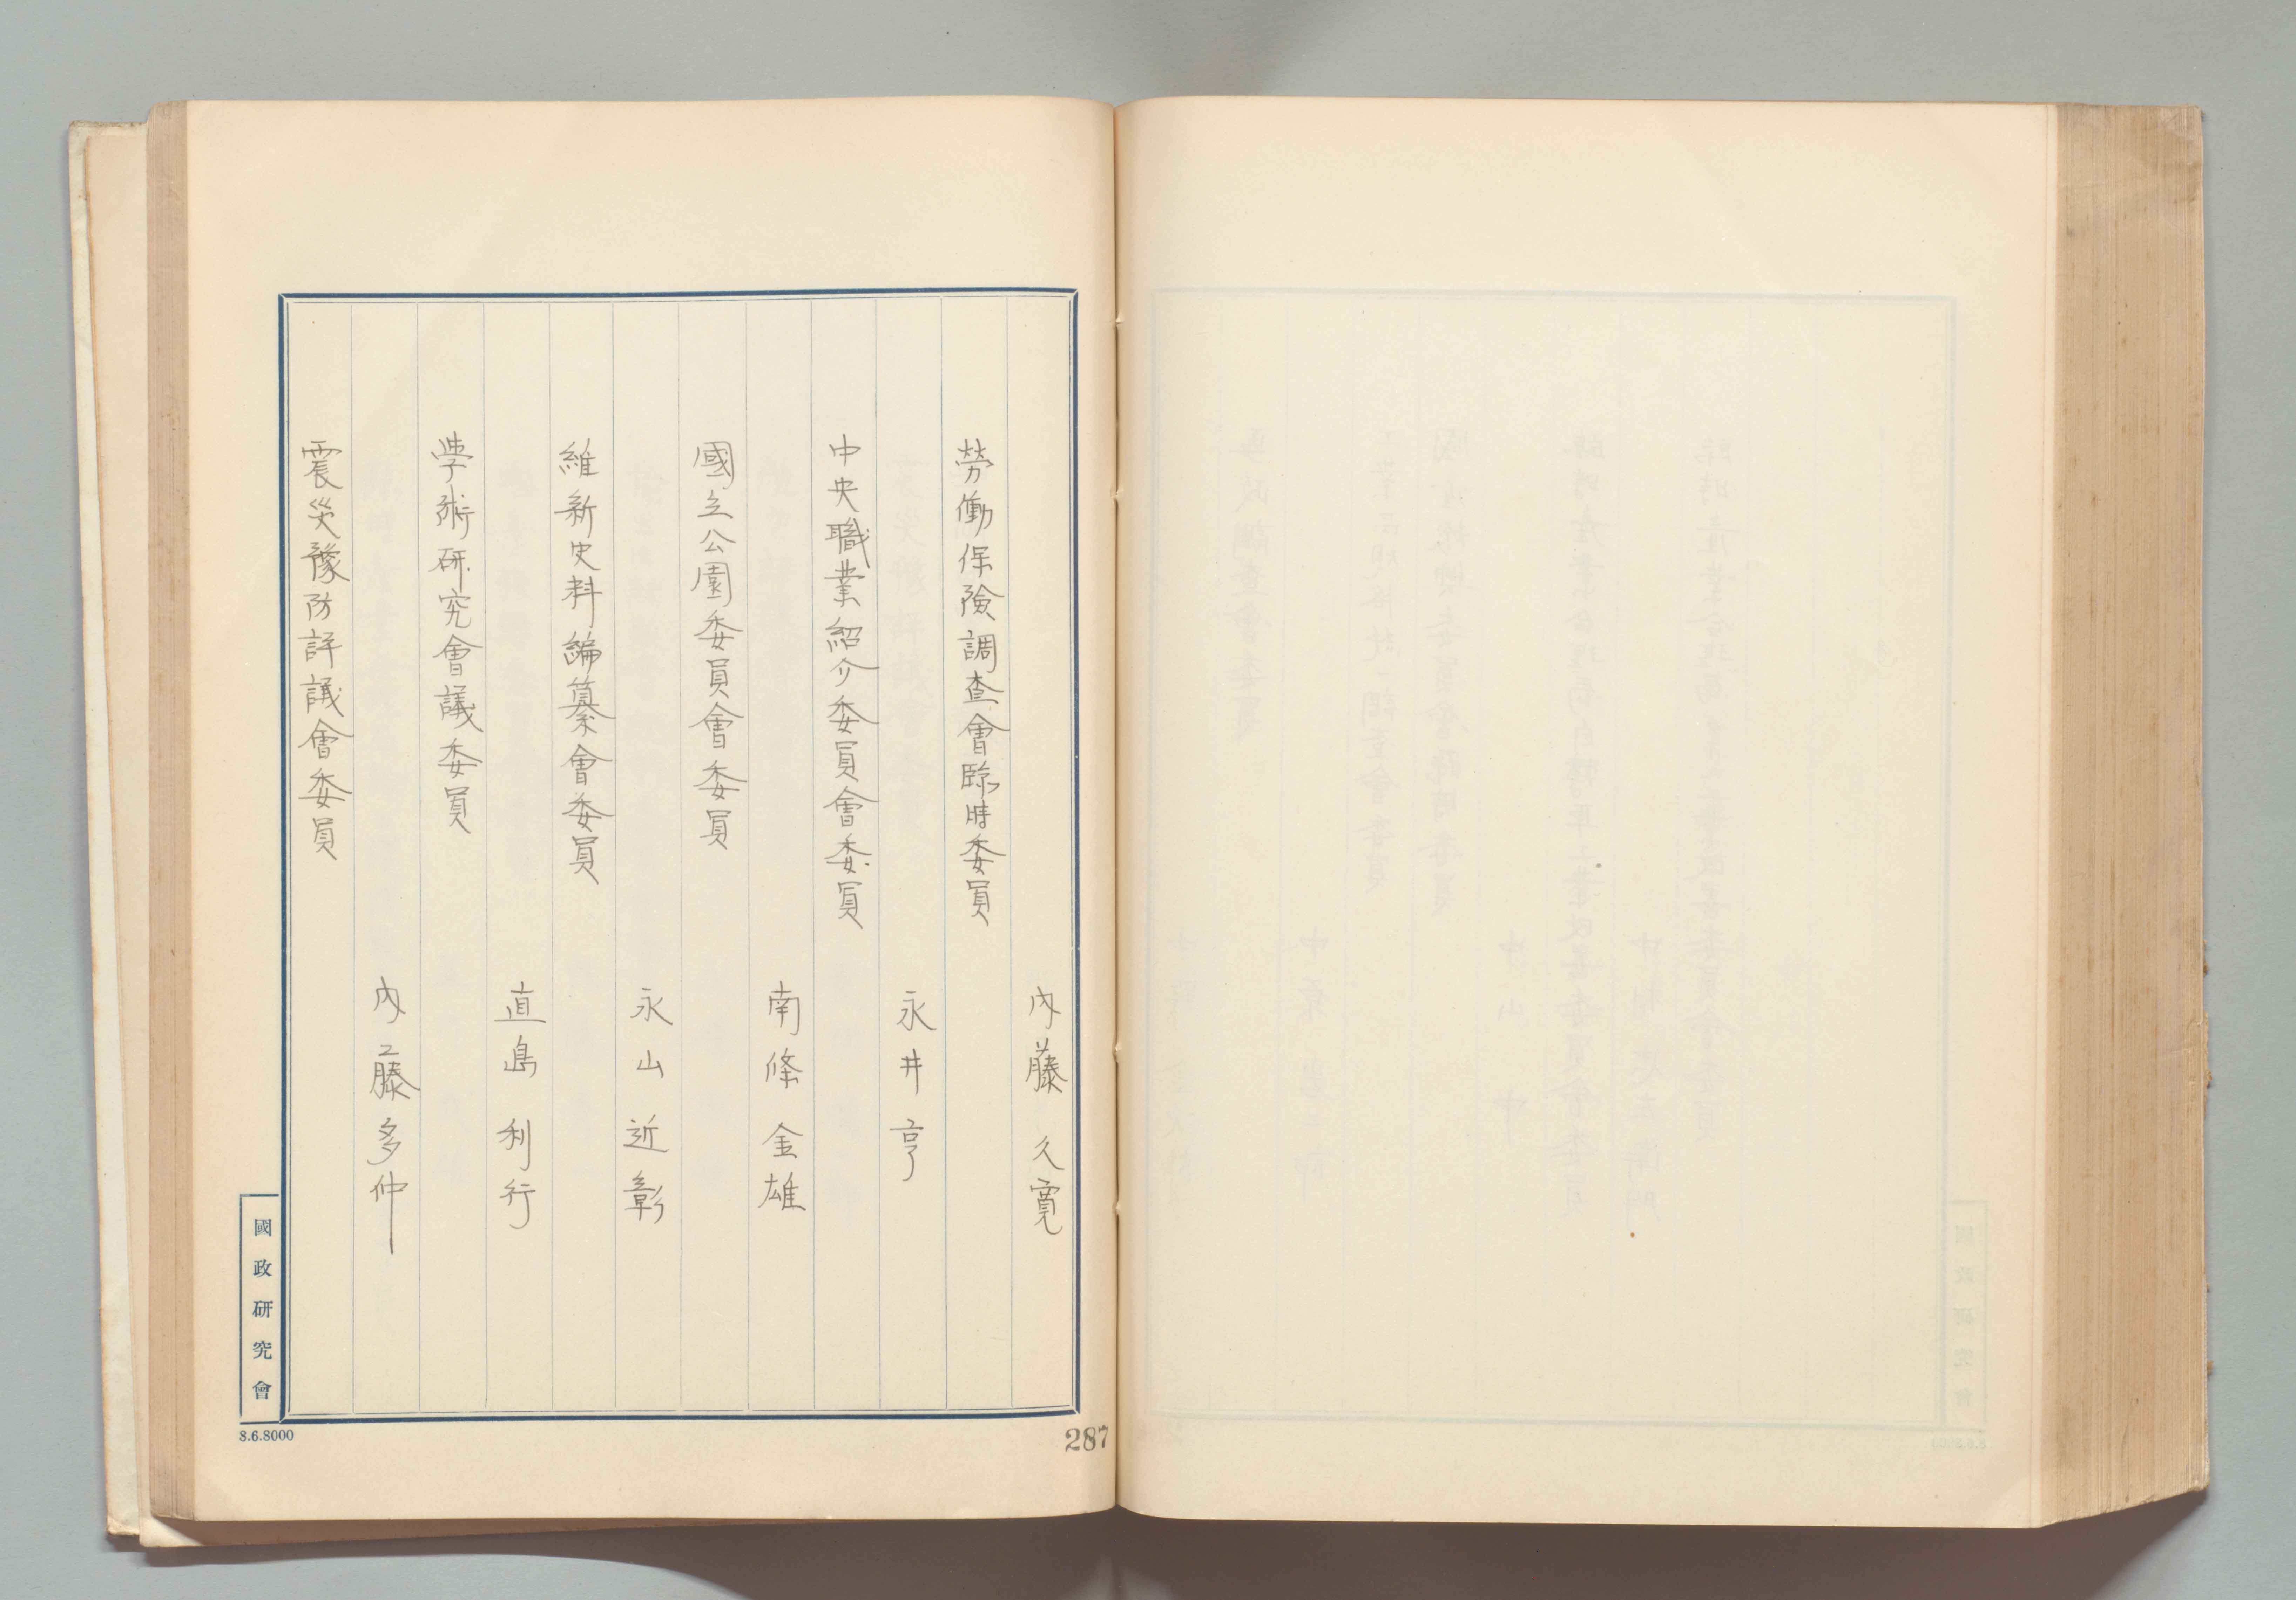 内藤久寛
勞働保險調査會臨時委員
永井亨
中央職業紹介委員會委員
南條金雄
國立公園委員會委員
永山近彰
維新史料編纂會委員
直島利行
學術研究會議委員
内藤多仲
震災豫防評議會委員
國政研究會
8.6.8000
287